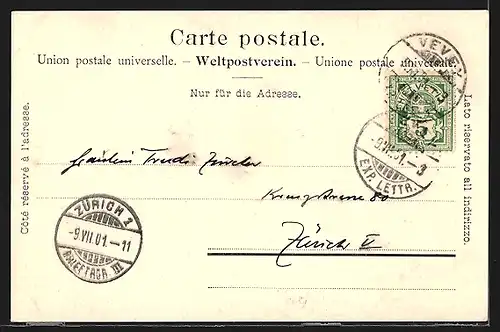 Carte postale.
Union postale universelle. – Weltpostverein. – Unione postale universale.
Nur für die Adresse.
Côté réservé à l'adresse.
Lato riservato all indirizzo.
VEVEY
5
-9.VII.01.-3
EXP. LETTR.
Fräulein Trudi
80
Zürich V
ZÜRICH 1
-9.VII.01.-11
BRIEFTRÄGER III